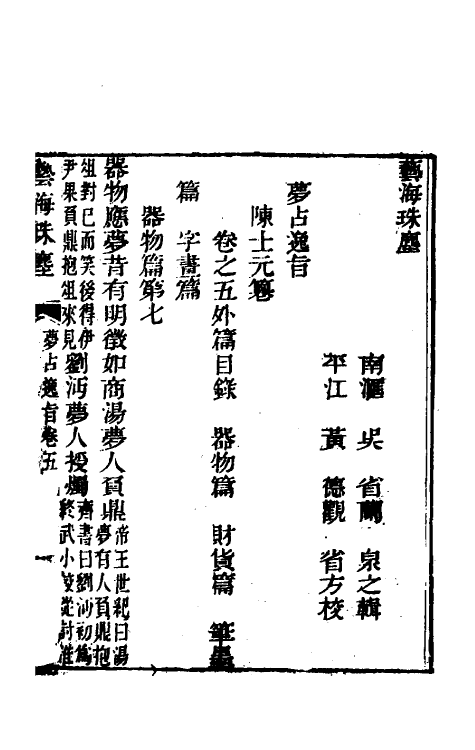 藝海珠塵
南滙　吳　省蘭　泉之輯
平江　黃　德觀　省方校
夢占逸旨
陳士元篹
卷之五外篇目錄　器物篇　財貨篇　筆墨
篇　字畫篇
器物篇第七
器物應夢昔有明徵如商湯夢人負鼎帝王世紀曰湯
夢有人負鼎抱
俎對已而笑後得伊
尹果負鼎抱俎來見劉沔夢人授燭齊書曰劉沔初為
終武小校從討淮
藝海珠塵
夢占逸旨卷五
一